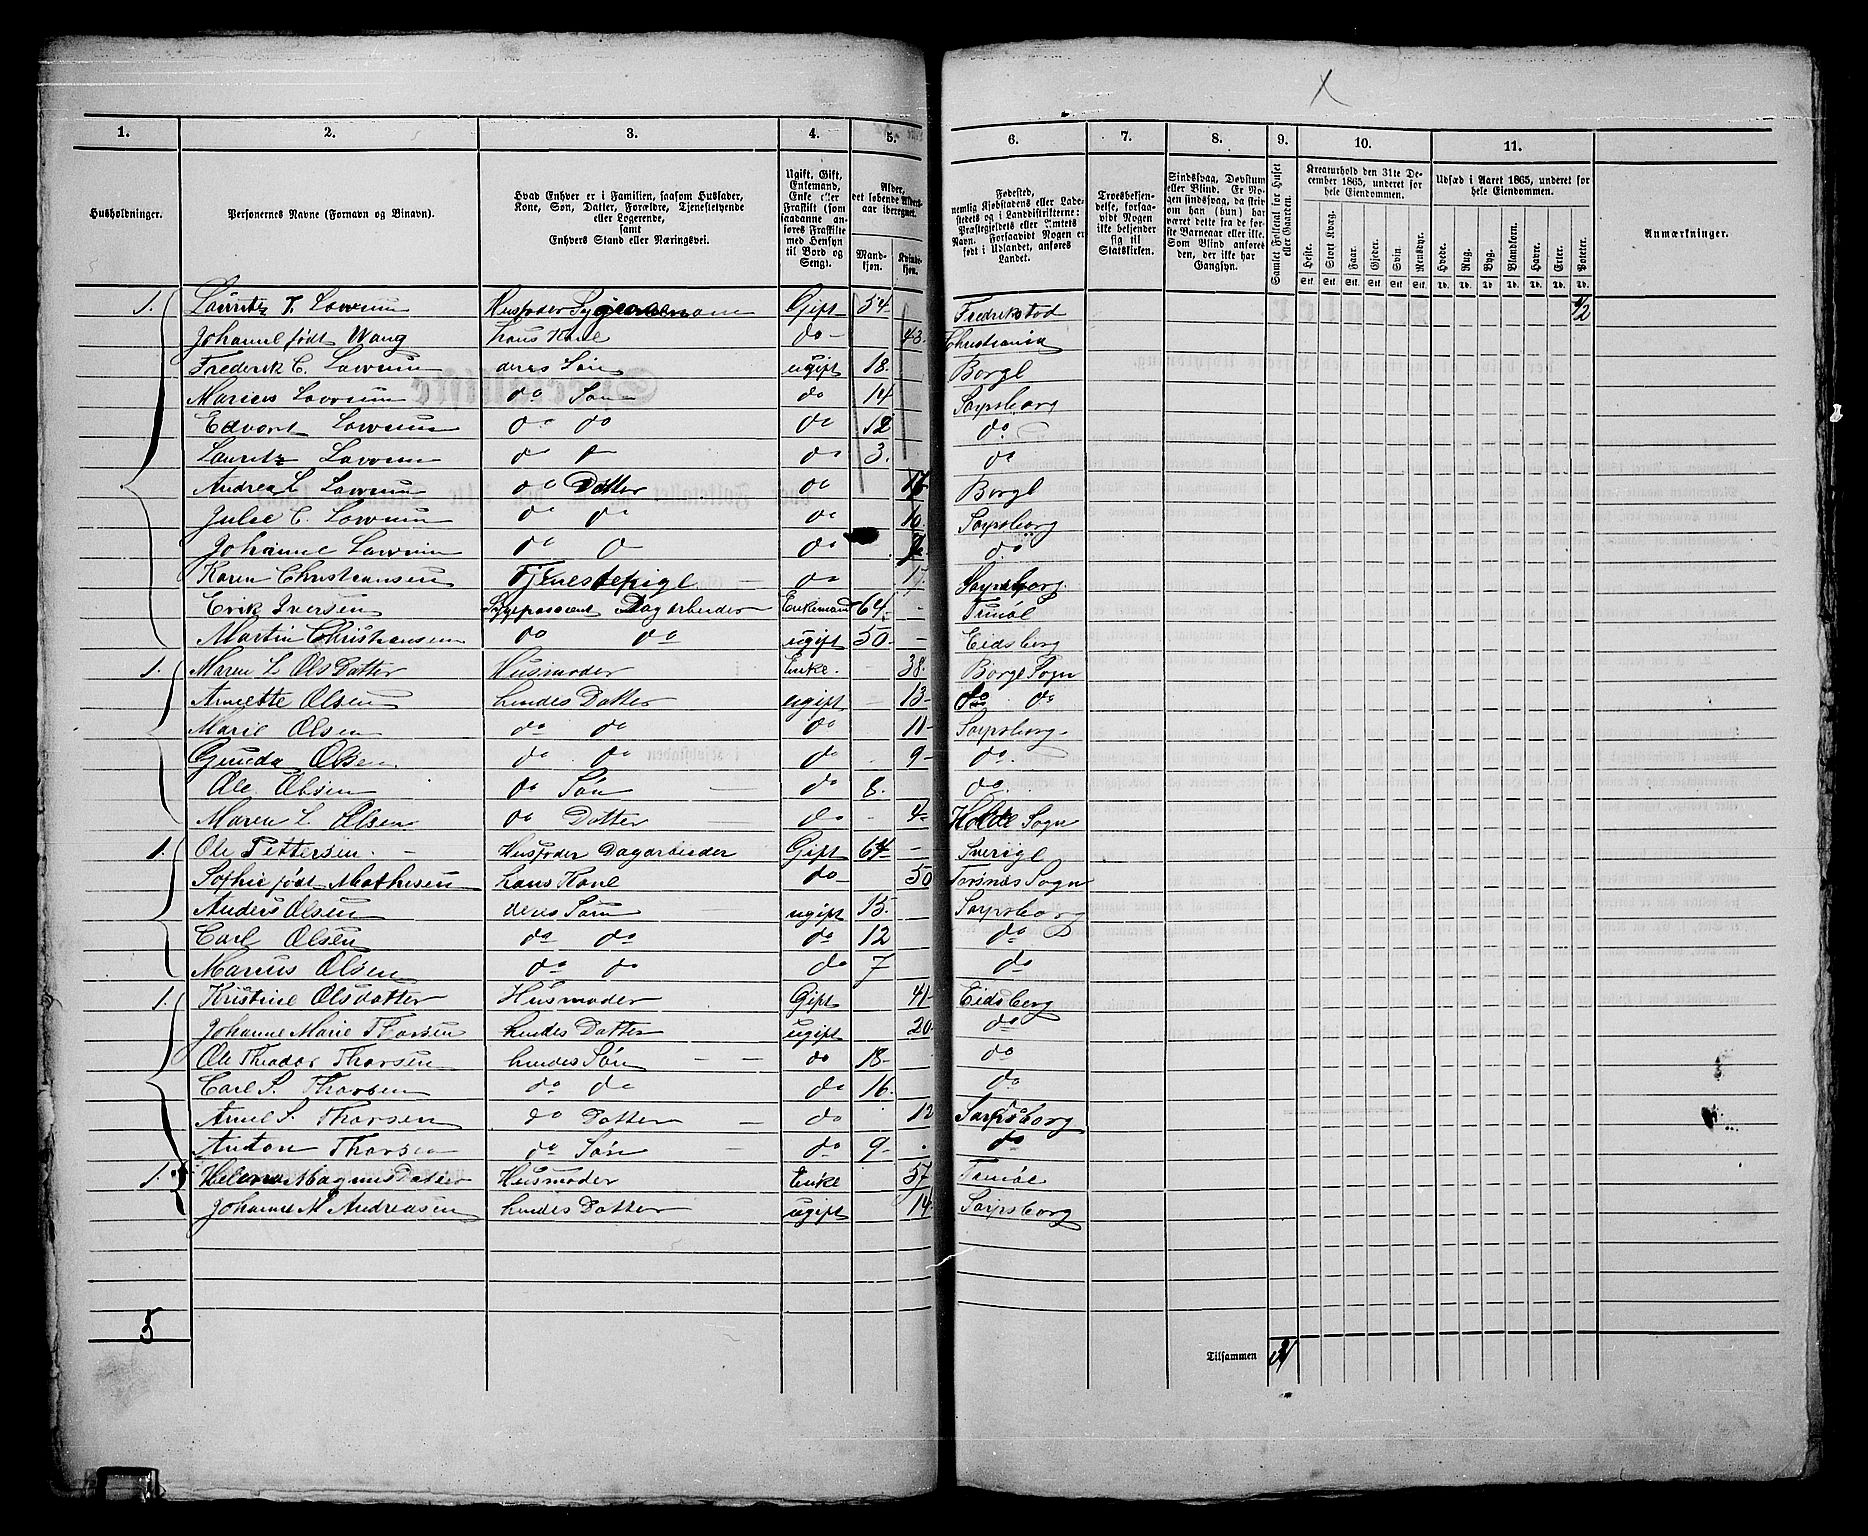 1. 2. 3. 4. 5. 6. 7. 8. 9. 10. 11.
Husholdninger.
Personernes Navne (Fornavn og Binavn).
Hvad Enhver er i Familien, saasom Husfader, Kone, Søn, Datter, Forældre, Tjenestetyende eller Logerende, samt Enhvers Stand eller Næringsvei.
Ugift, Gift, Enkemand, Enke eller Fraskilt (som saadanne anføres Fraskilte med Hensyn til Bord og Seng).
Alder, det løbende Alders-aar iberegnet.
Mand-kjøn. Kvinde-kjøn.
Fødested, nemlig Kjøbstadens eller Ladestedets og i Landdistrikterne: Præstegjeldets eller Amtets Navn. Forsaavidt Nogen er født i Udlandet, anføres Landet.
Troesbekjendelse, forsaavidt Nogen ikke bekjender sig til Statskirken.
Sindssvag, Døvstum eller Blind. Er Nogen sindssvag, da skrives han (hun) har været dette fra de første Barneaar eller ikke. Som Blind anføres den, der ikke har Gangsyn.
Samlet Folketal for Huset eller Gaarden.
Kreaturhold den 31te December 1865, underet for hele Eiendommen.
Heste. Stort Kvæg. Faar. Gjeder. Svin. Rensdyr.
Udsæd i Aaret 1865, underet for hele Eiendommen.
Hvede. Rug. Byg. Blandkorn. Havre. Erter. Poteter.
Anmærkninger.
Stk. Stk. Stk. Stk. Stk. Stk. Td. Td. Td. Td. Td. Td. Td.
1. Lauritz J. Lovrum Husfader Gift 54 Fredrikstad 1/2
Johanne født Wang hans Kone do 43 Christiania
Frederik C. Lovrum deres Søn ugift 18 Borge
Marius Lovrum do Søn do 14 Sarpsborg
Edvort Lovrum do do do 12 do
Lauritz Lovrum do do do 3 do
Andrea L Lovrum do Datter do 17 Borge
Julie C. Lovrum do do do 10 Sarpsborg
Johanne Lovrum do do do do
Karen Christiansen Tjenestepige do Sarpsborg
Erik Iversen Dagarbeider Enkemand 64 Tunøe
Martin Christiansen do do ugift 50 Eidsberg
1. Maren L Ols Datter Husmoder Enke 38 Borge Sogn
Annette Olsen hendes Datter ugift 13 do do
Marie Olsen do do do 11 Sarpsborg
Gunda Olsen do do do 9 do
Ole Olsen do Søn do 8 do
Maren L. Olsen do Datter do 4 Sogn
1. Ole Pettersen Husfader Dagarbeider Gift 64 Sverige
Sophie født Mathisen hans Kone do 50 Torsnæs Sogn
Anders Olsen deres Søn ugift 15 Sarpsborg
Carl Olsen do do do 12 do
Marius Olsen do do do 7 do
1. Kristine Olsdatter Husmoder Gift 41 Eidsberg
Johanne Marie Thorsen hendes Datter ugift 20 do
Ole Theodor Thorsen hendes Søn do 18 do
Carl S. Thorsen do do do 16 do
Anne S. Thorsen do Datter do 12 Sarpsborg
Anton Thorsen do Søn do 9 do
1. Helena Magnus Datter Husmoder Enke 57 Tunøe
Johanne M Andreasen hendes Datter ugift 14 Sarpsborg
5
Tilsammen 31